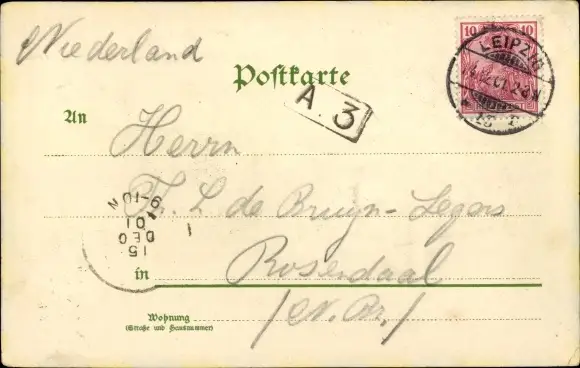 Niederland
10 10
LEIPZIG
Postkarte
A 3
An
Herrn
Th. L de Bruyn-Legers
9-10 N
01
DEC
15
in
Rosendaal
/N. Br./
Wohnung
(Straße und Hausnummer)